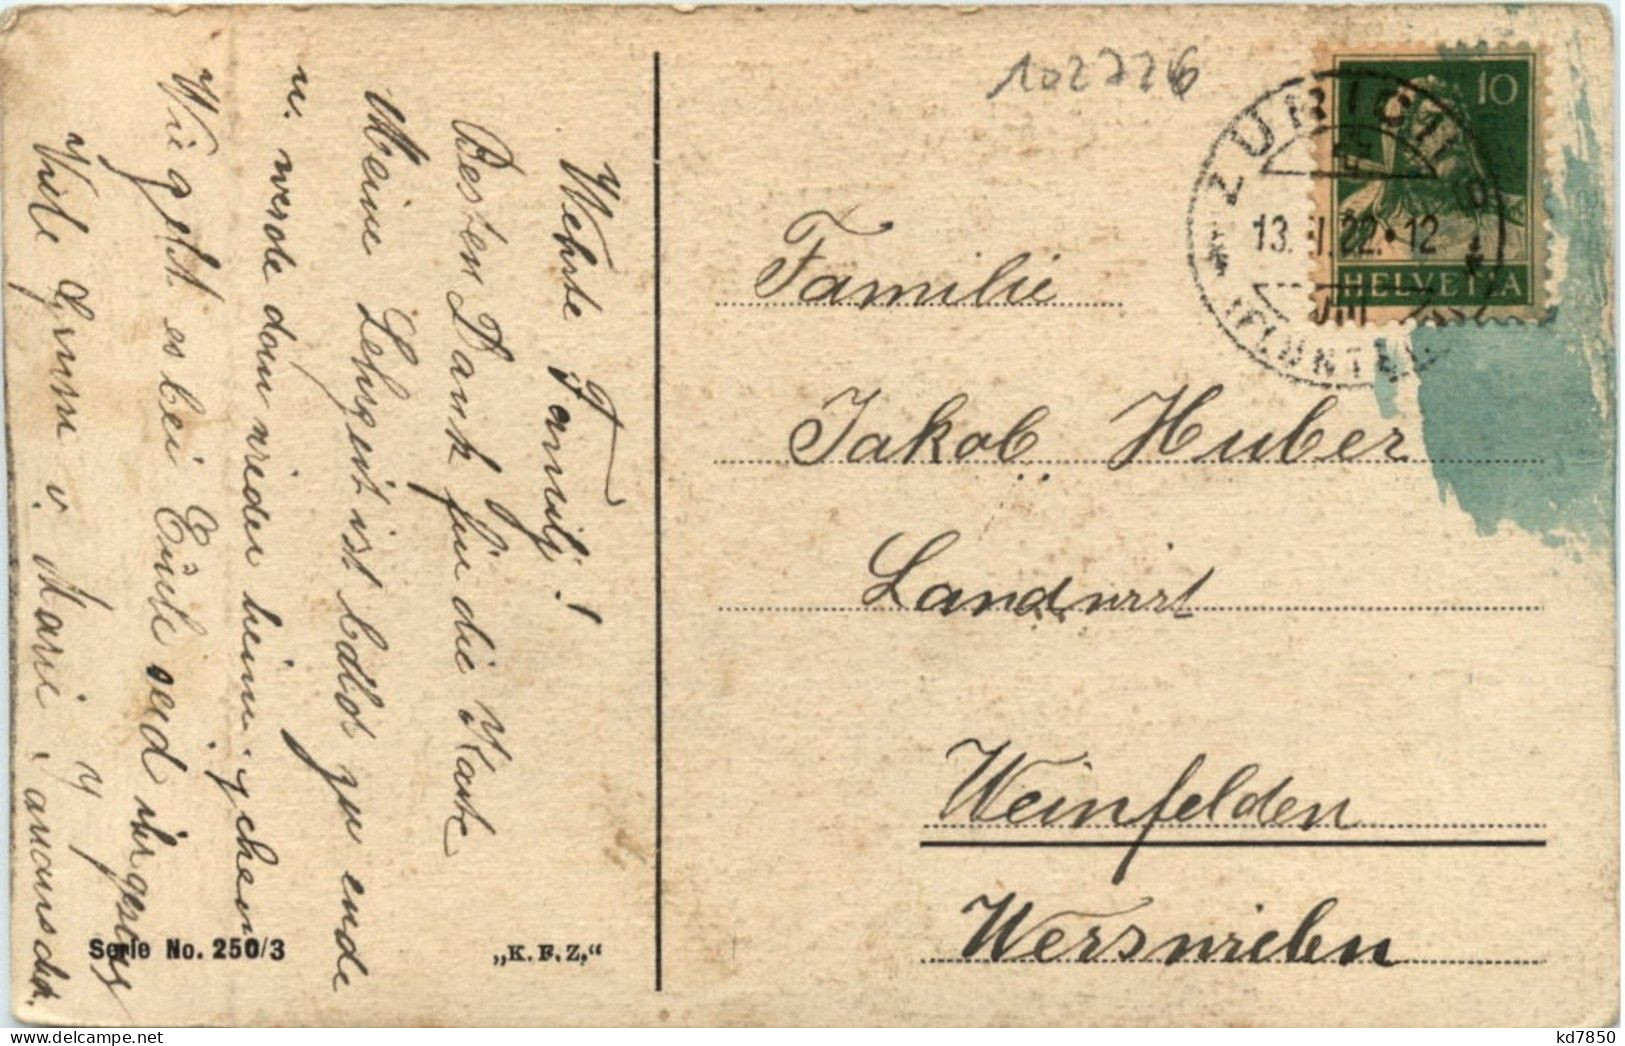 Werte Familj!
Besten Dank für die Karte
Meine Lehrzeit ist bald zu ende
u. werde dan wieder heim gehen
Wie geht es bei Euch seid ihr gesund
Viele Grüsse v. Marie
102776
Familie
Jakob Huber
Landwirt
Weinfelden
Werswielen
10
HELVETIA
ZÜRICH
13. 22. 12
Serie No. 250/3
„K. F. Z.“
kd7850